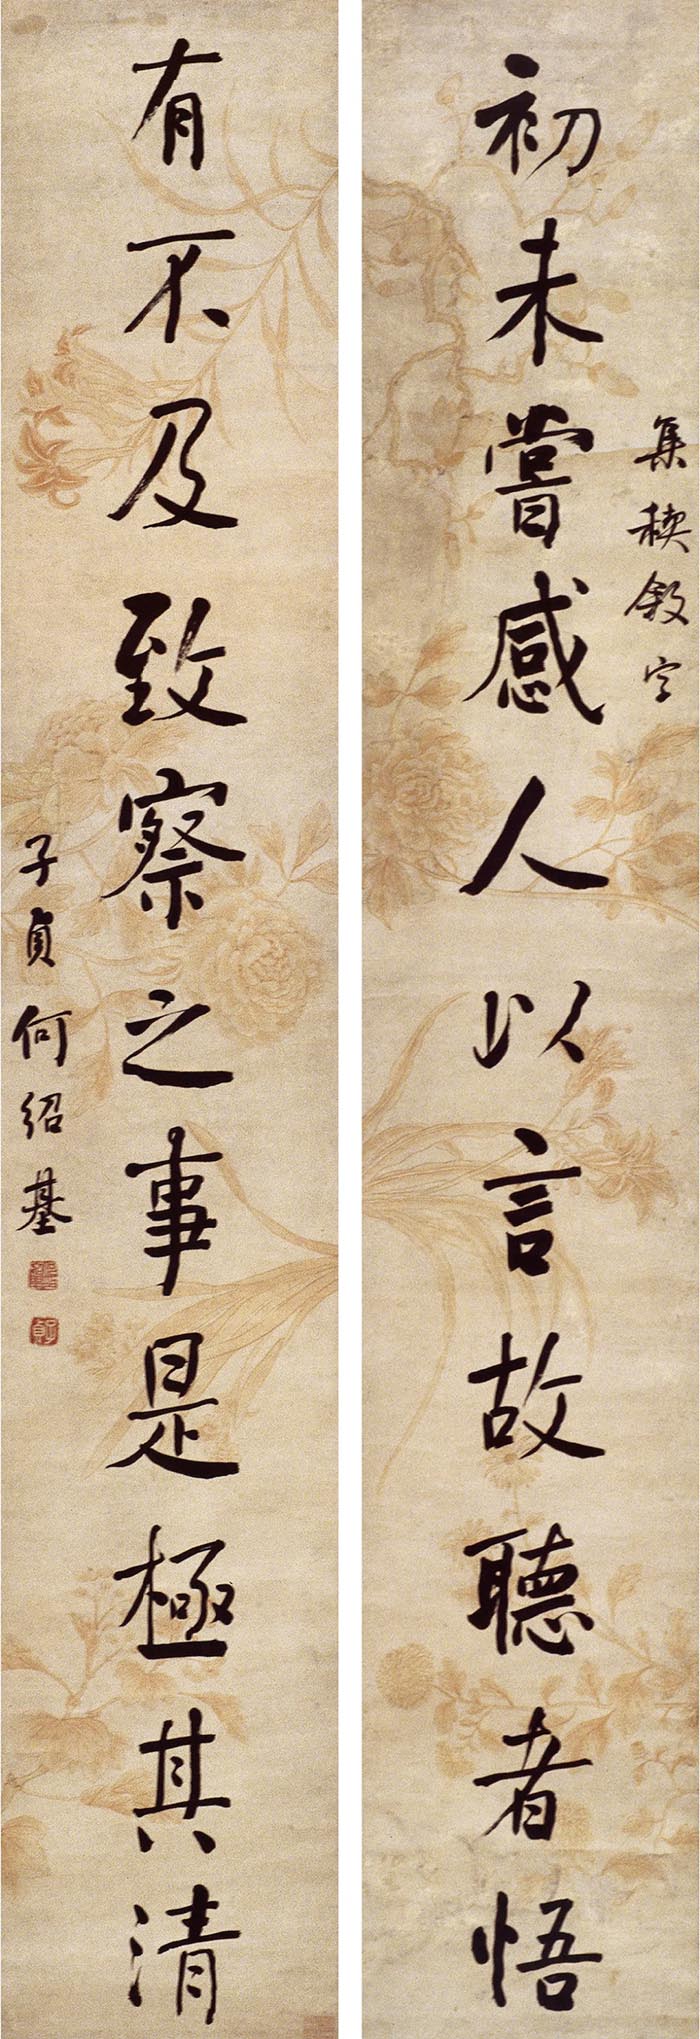 集禊敘字
初未嘗感人以言故聽者悟
有不及致察之事是極其清
子貞何紹基